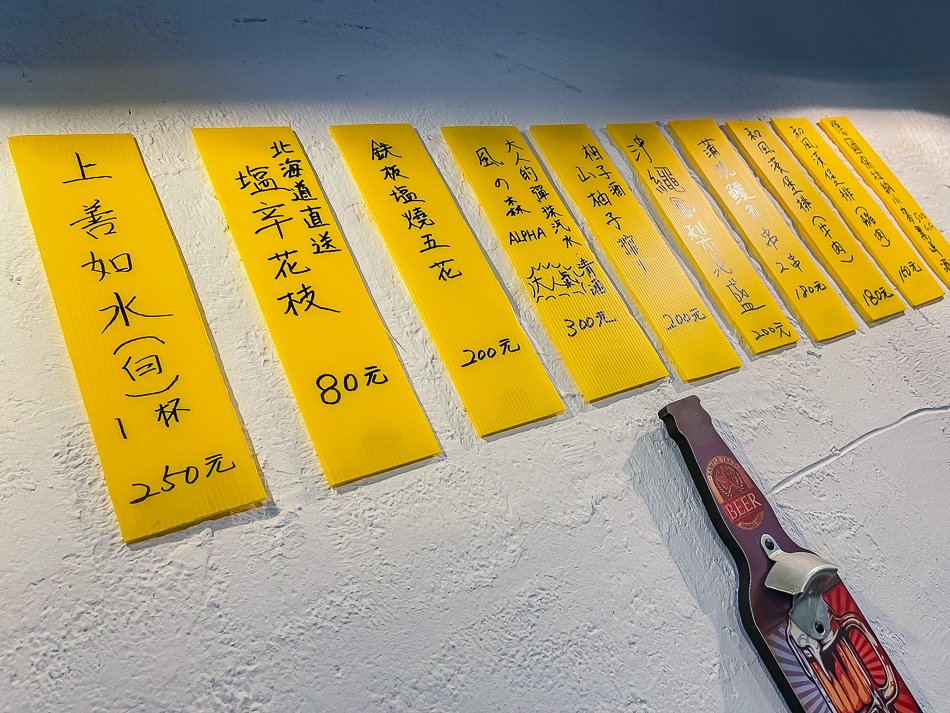 上善如水(白)
1杯
250元
北海道直送
塩辛花枝
80元
鉄板塩燒五花
200元
大人的彈珠汽水
風の森
ALPHA
大人氣清酒
300元
柚子酒
山柚子搾り
200元
沖繩鳳梨
200元
蒲燒鰻魚串
2串
180元
和風漢堡排(牛肉)
180元
和風漢堡排(豬肉)
160元
BEER